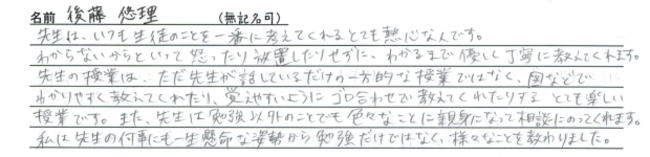 名前 後藤 悠理 (無記名可)
先生は、いつも生徒のことを一番に考えてくれるとても熱心なんです。
わからないからといって怒ったり放置したりせずに、わかるまで優しく丁寧に教えてくれます。
先生の授業は、ただ先生が話しているだけの一方的な授業ではなく、図などで
わかりやすく教えてくれたり、覚えやすいようにゴロ合わせで教えてくれたりする とても楽しい
授業です。また、先生は勉強以外のことでも色々なことに親身になって相談にのってくれます。
私は先生の何事にも一生懸命な姿勢から勉強だけではなく、様々なことを教わりました。